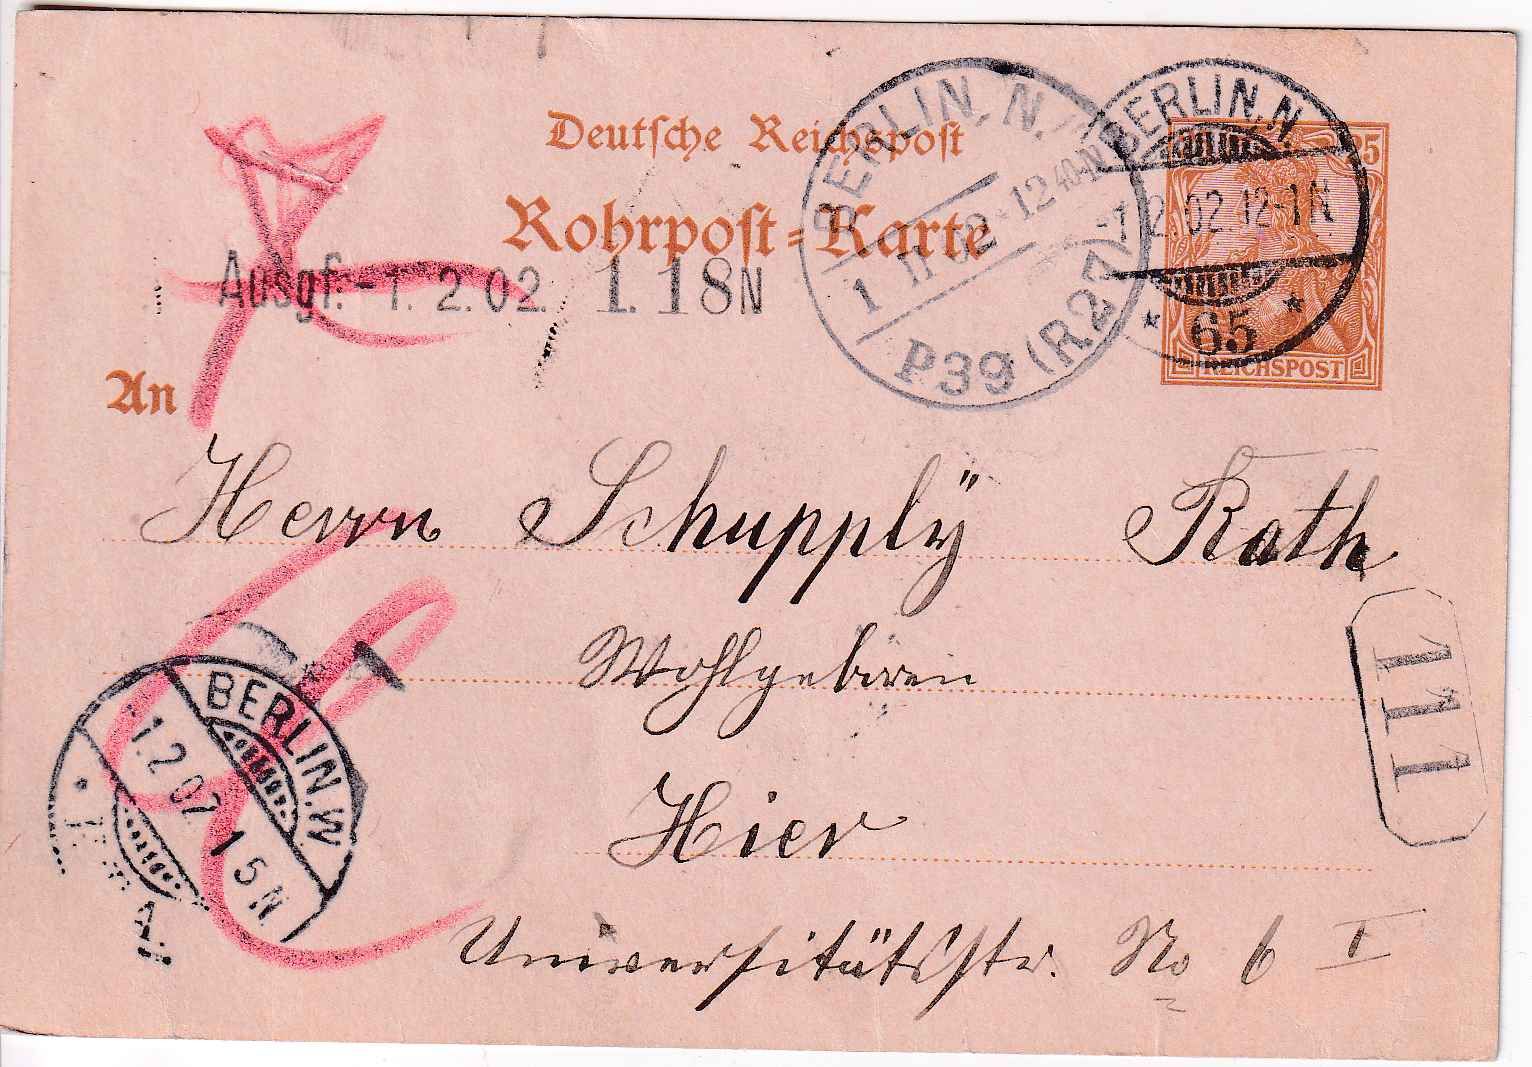 Deutsche Reichspost
Rohrpost-Karte
25
REICHSPOST
BERLIN. N.
1 II 02 * 12 40-N
P39 (R.27)
BERLIN.N.
-1. 2. 02 12-1N
* 65 *
Ausgf. -1. 2. 02. 1. 18N
An
Herrn Schupplÿ Rath
Wohlgeboren
Hier
Universitätsstr. No 6 I
111
BERLIN.W
1. 2 02 1 5 N